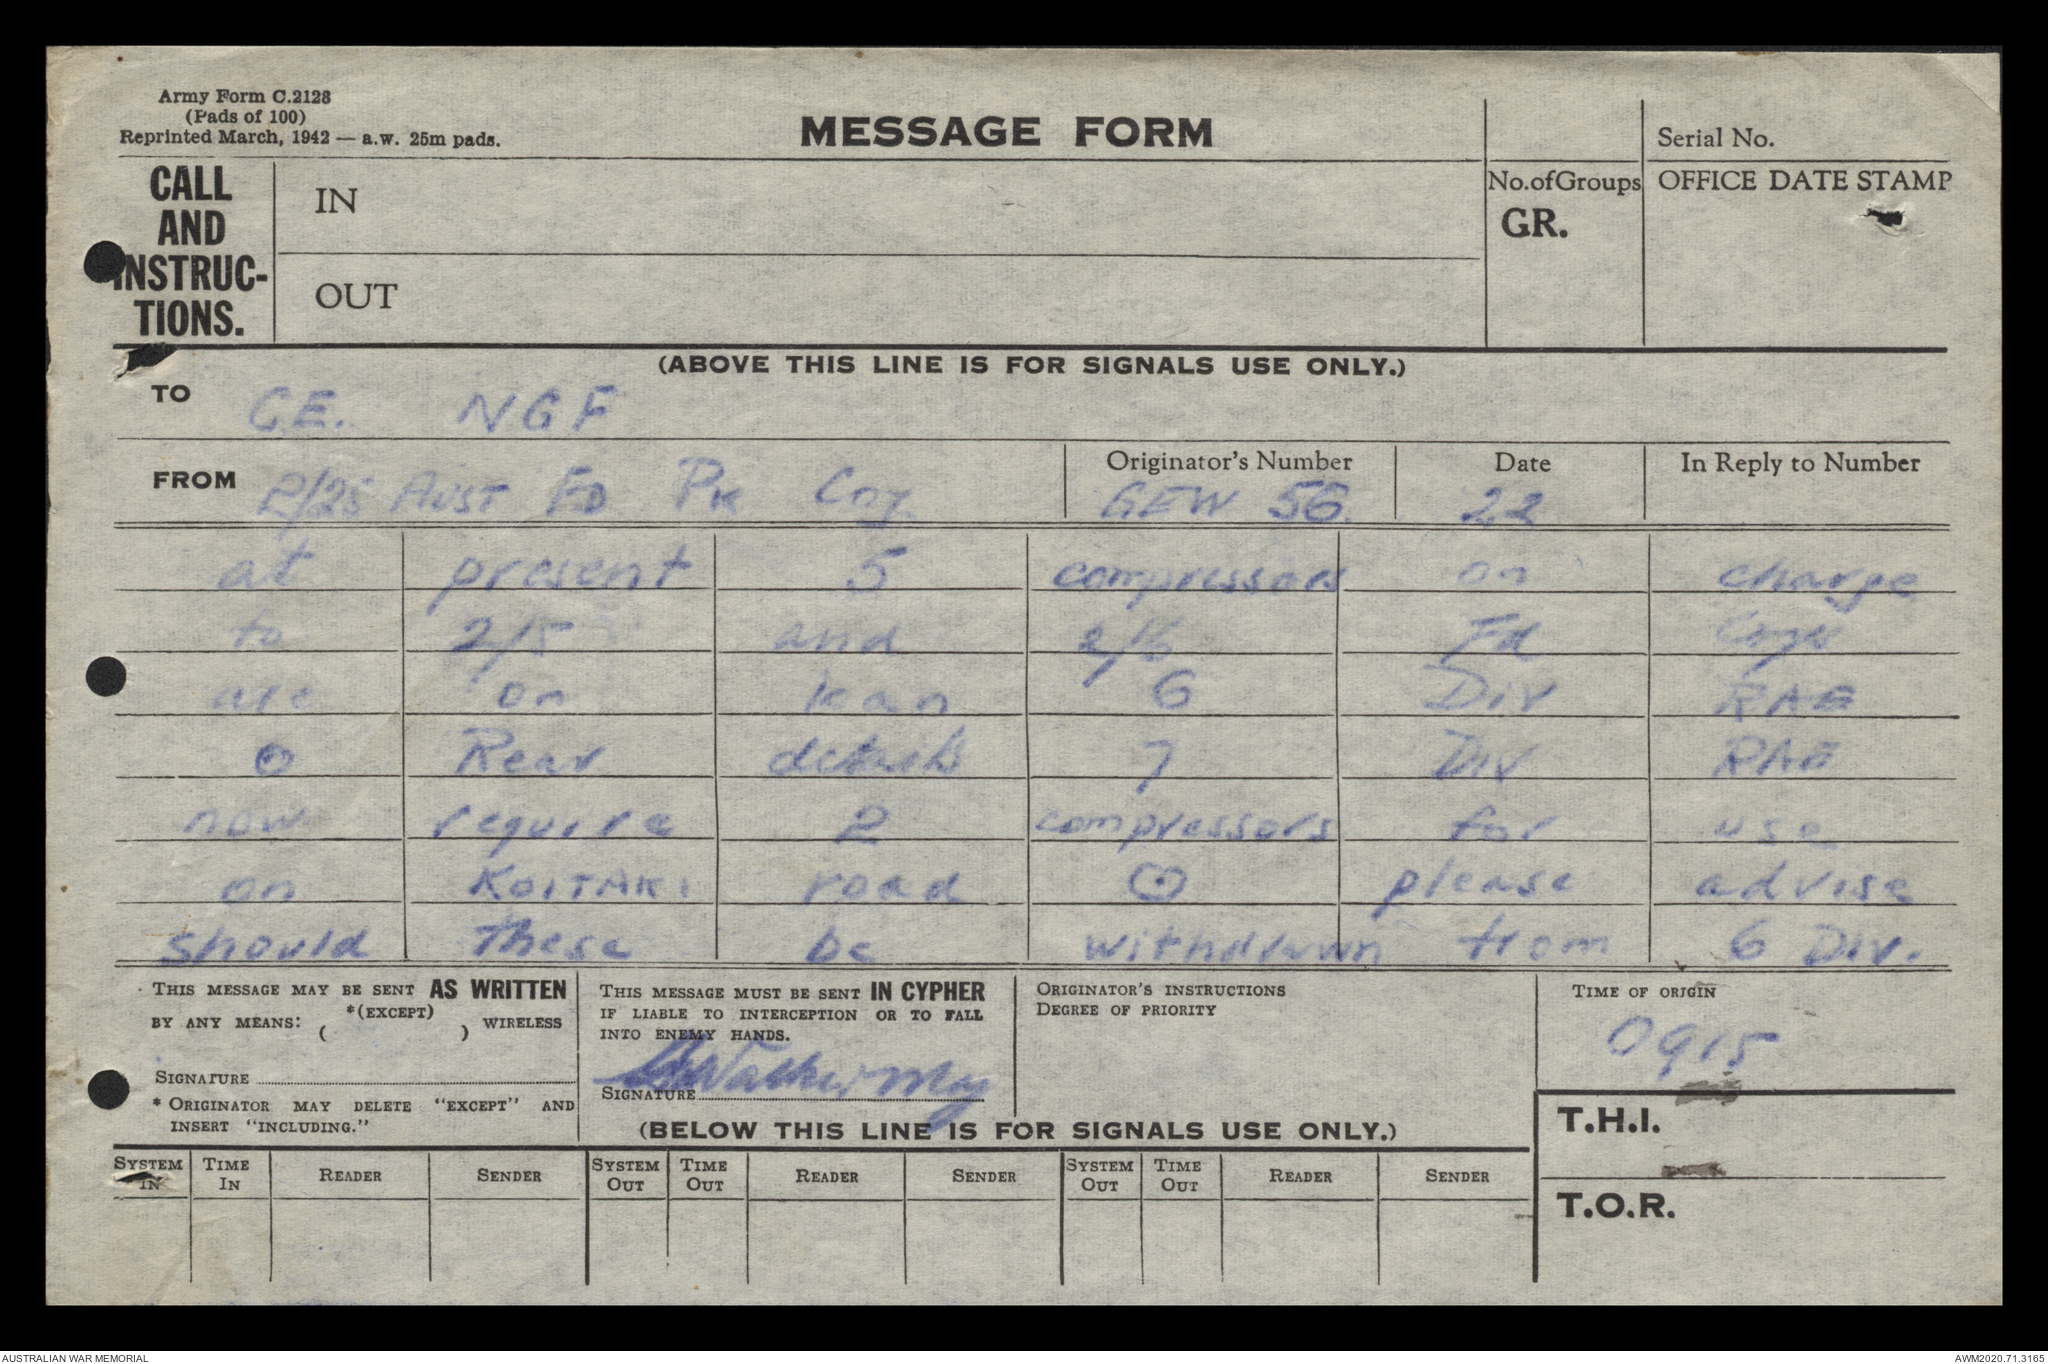 Army Form C.2128
(Pads of 100)
Reprinted March, 1942 — a.w. 25m pads.
MESSAGE FORM
Serial No.
CALL AND INSTRUC-TIONS.
IN
OUT
No.ofGroups
GR.
OFFICE DATE STAMP
(ABOVE THIS LINE IS FOR SIGNALS USE ONLY.)
TO C.E. NGF
FROM 2/25 AUST FD PK Coy.
Originator's Number GEW 56.
Date 22
In Reply to Number
at present 5 compressors on charge
to 2/5 and 2/6 Fd Coys
are on loan 6 Div RAE
⊙ Rear details 7 Div RAE
now require 2 compressors for use
on KOITAKI road ⊙ please advise
should these be withdrawn from 6 Div.
THIS MESSAGE MAY BE SENT AS WRITTEN
BY ANY MEANS: *(EXCEPT) ( ) WIRELESS
SIGNATURE
* ORIGINATOR MAY DELETE "EXCEPT" AND
INSERT "INCLUDING."
THIS MESSAGE MUST BE SENT IN CYPHER
IF LIABLE TO INTERCEPTION OR TO FALL
INTO ENEMY HANDS.
SIGNATURE Maj
ORIGINATOR'S INSTRUCTIONS
DEGREE OF PRIORITY
TIME OF ORIGIN
0915
T.H.I.
T.O.R.
(BELOW THIS LINE IS FOR SIGNALS USE ONLY.)
SYSTEM IN TIME IN READER SENDER SYSTEM OUT TIME OUT READER SENDER SYSTEM OUT TIME OUT READER SENDER
AUSTRALIAN WAR MEMORIAL
AWM2020.71.3165